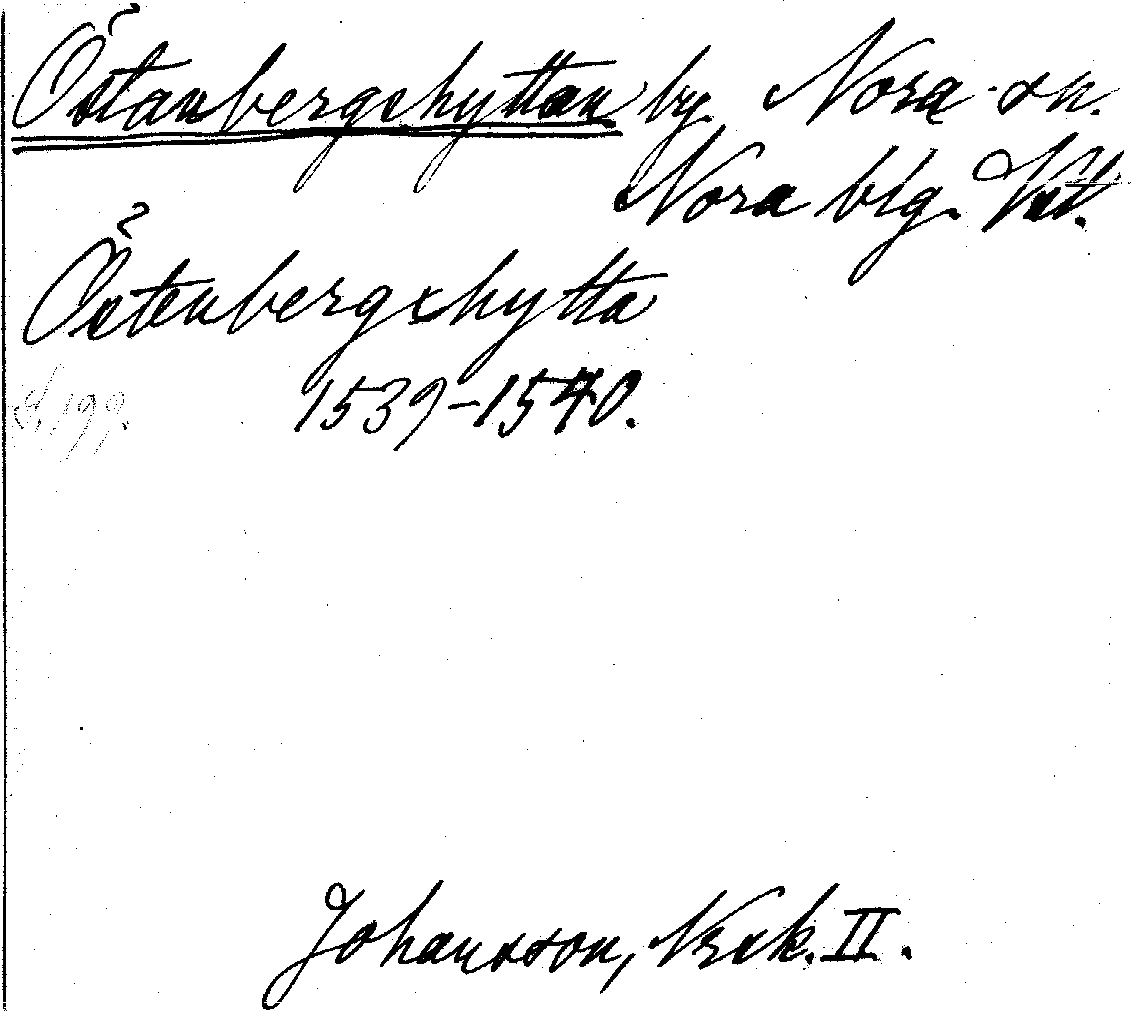 Östanbergshyttan by. Nora sn.
Nora blg. Vstl.
Östenbergshytta
S. 199.
1539-1540.
Johansson, Nrsk. II.